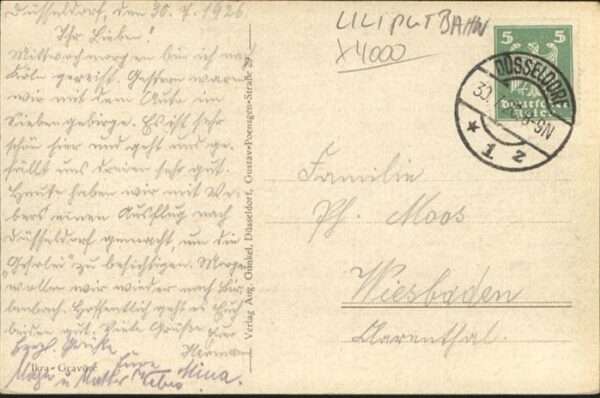 Düsseldorf, den 30. 7. 1926
Ihr Lieben!
Mittwochmorgen bin ich nach
Köln gereist. Gestern waren
wir mit dem Auto im
Siebengebirge. Es ist sehr
schön hier und geht und ge-
fällt uns dreien sehr gut.
Heute haben wir mit We-
bers einen Ausflug nach
Düsseldorf gemacht, um die
"Gesolei" zu besichtigen. Morgen
wollen wir wieder nach
Hoffentlich geht es Euch
beiden gut. Viele Grüße Euer
Hermann
Herzl. Grüße Eure
u. Mutter Mina.
Ikra-Gravüre
Verlag Aug. Gunkel, Düsseldorf, Gustav-Poensgen-Straße 29
LILIPUTBAHN
X4000
5 5
Deutsches
Reich
DÜSSELDORF
30. 8-9N
* 1 z
Familie
Ph. Moos
Wiesbaden
Clarenthal.